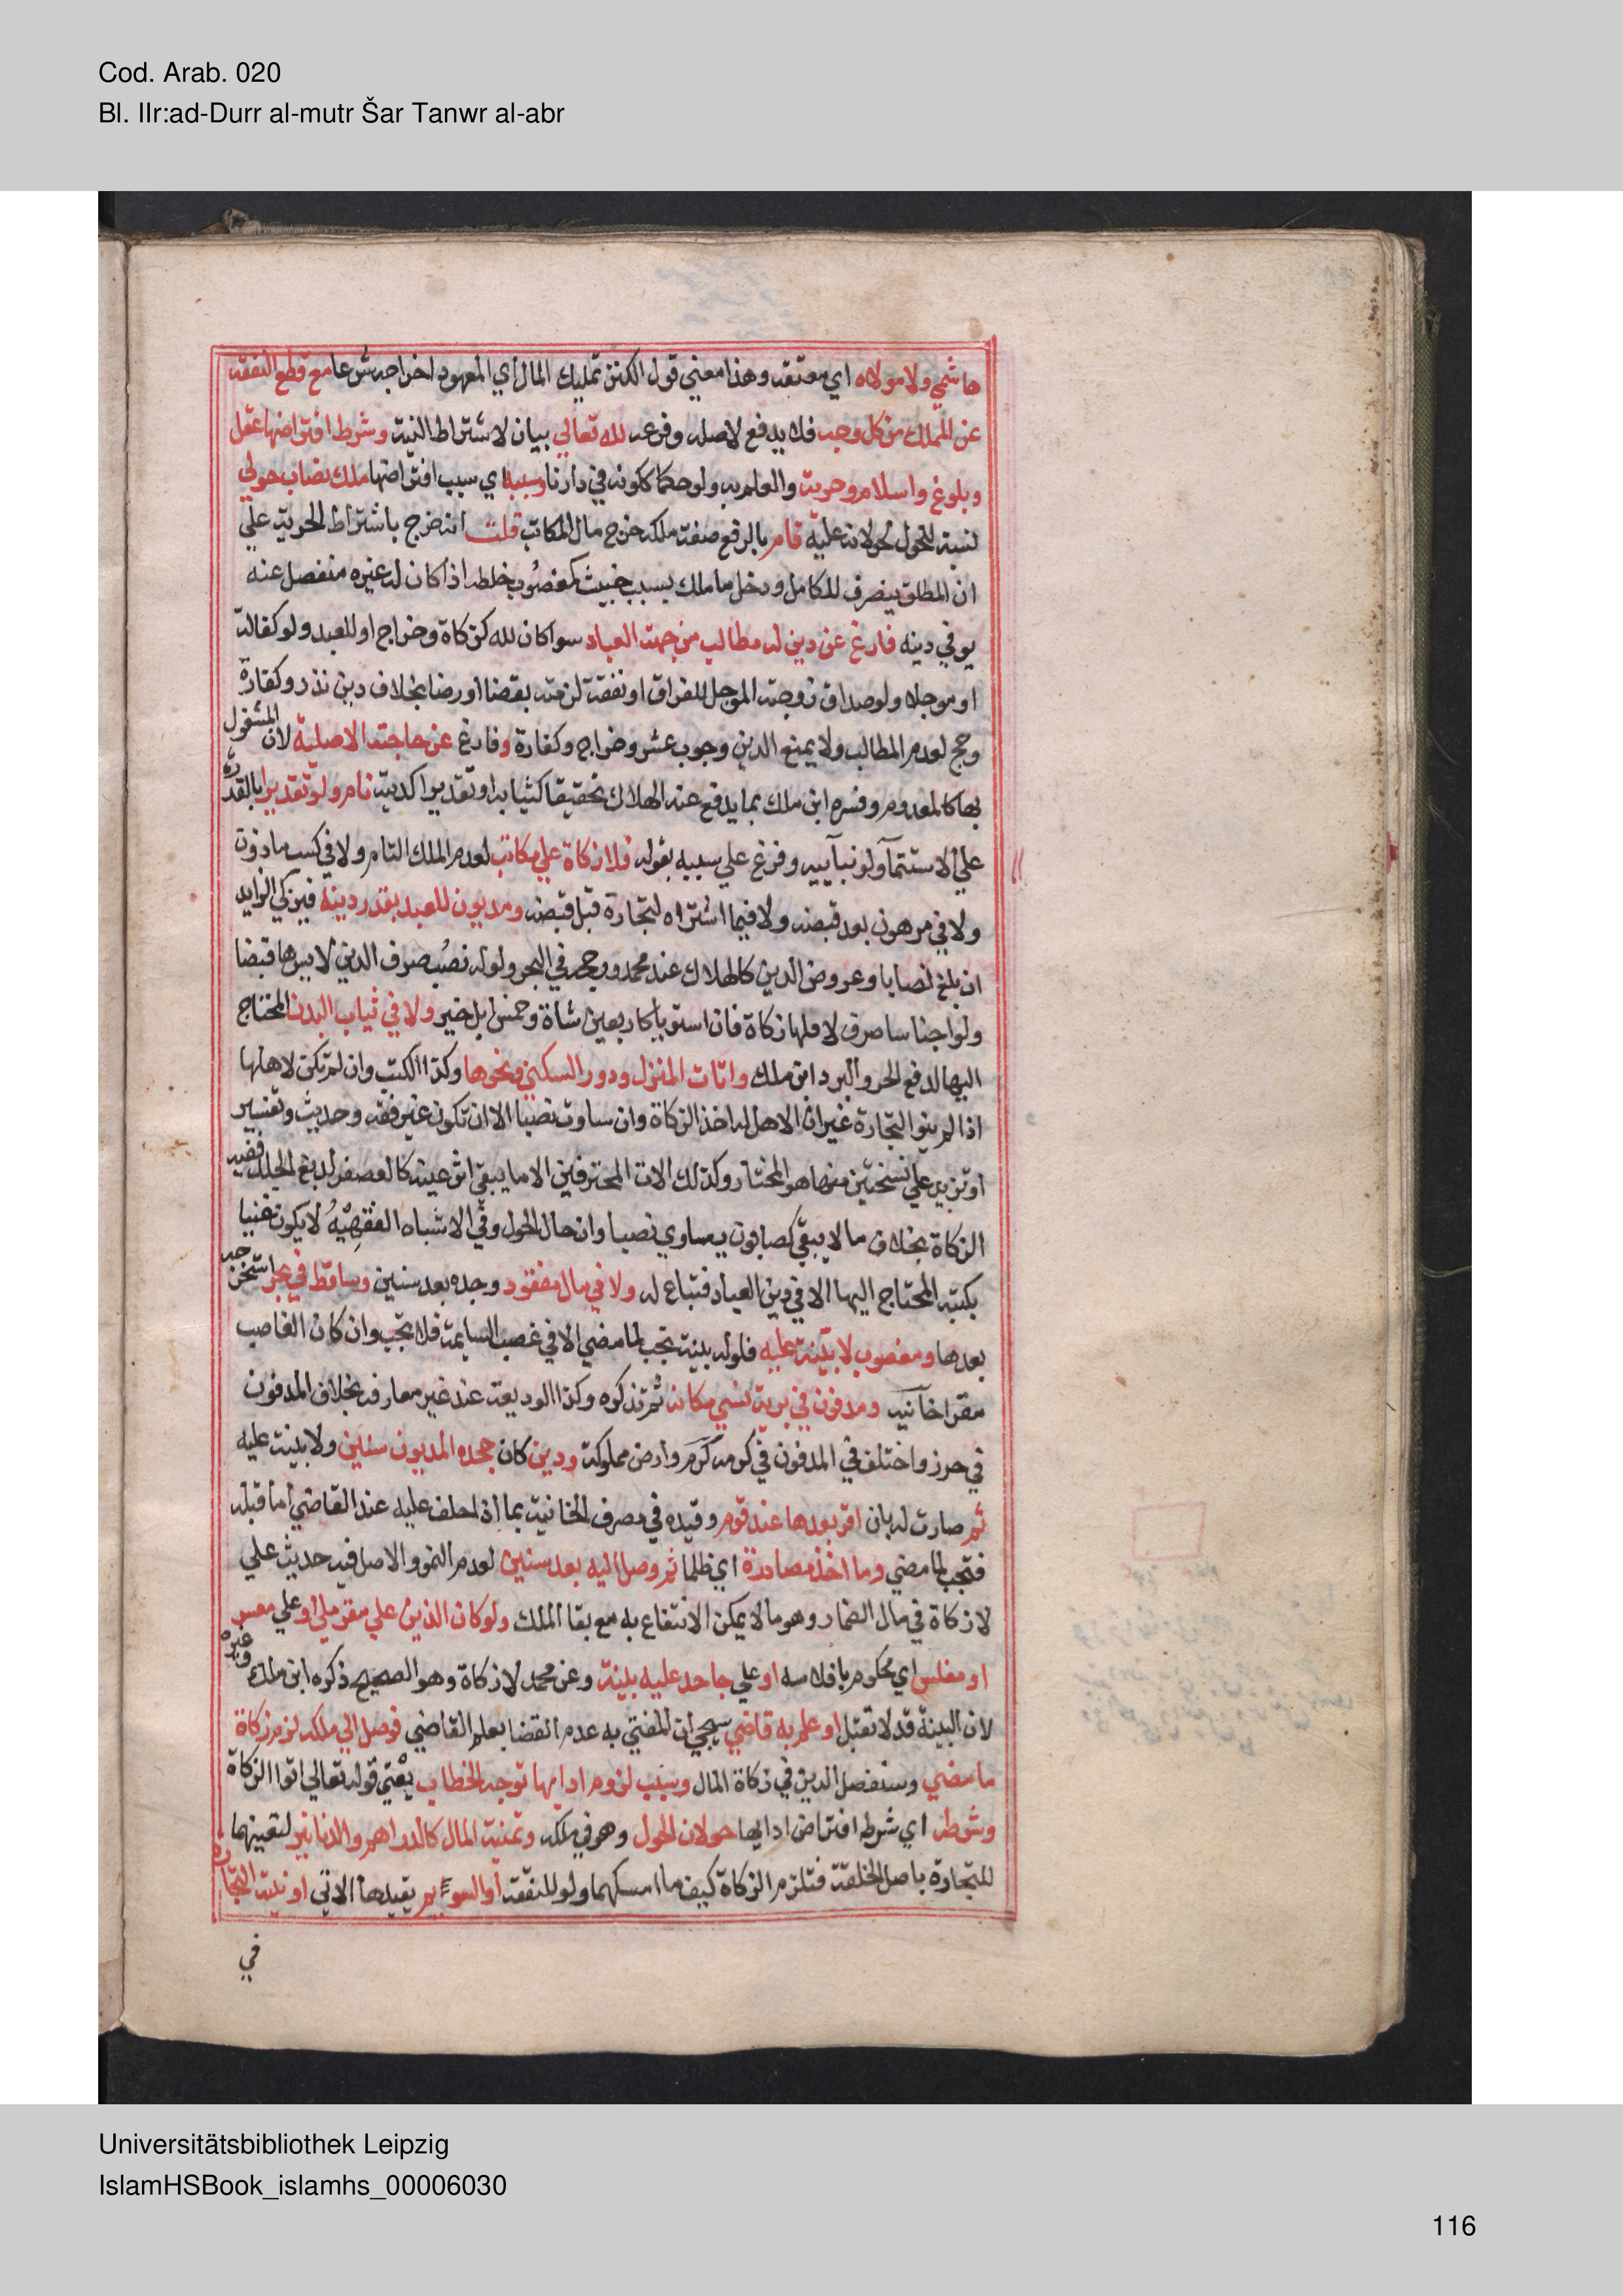 Cod. Arab. 020
Bl. IIr:ad-Durr al-mutr Šar Tanwr al-abr
هاشمي ولا مولاه اي معتقه وهذا معني قول الكنز تمليك المال اي المعهود اخراجه شرعا مع قطع النفقة
عن المملك من كل وجه فلا يدفع لاصله وفرعه لله تعالي بيان لاشتراط النية وشرط افتراضها عقل
وبلوغ واسلام وحرية والعلم به ولو حكما ككونه في دارنا وسببه اي سبب افتراضها ملك نصاب حولي
نسبة للحول لحولانه عليه تام بالرفع صفة ملك خرج مال المكاتب قلت انه خرج باشتراط الحرية علي
ان المطلق ينصرف للكامل ودخل ما ملك بسبب خبيث كمغصوب خلطه اذا كان له غيره منفصل عنه
يوفي دينه فارغ عن دين له مطالب من جهة العباد سوا كان لله كزكاة وخراج او للعبد ولو كفالة
او موجلا ولو صداق زوجته الموجل للفراق او نفقة لزمته بقضا او رضا بخلاف دين نذر وكفارة
وحج لعدم المطالب ولا يمنع الدين وجوب عشر وخراج وكفارة وفارغ عن حاجته الاصلية لان المشغول
بها كالمعدوم وفسره ابن ملك بما يدفع عنه الهلاك تحقيقا كثيابه او تقديرا كدينه نام ولو تقديرا بالقدرة
علي الاستنما ولو نبآييه وفرع علي سببه بقوله فلا زكاة علي مكاتب لعدم الملك التام ولا في كسب ماذون
ولا في مرهون بعد قبضه ولا فيما اشتراه لتجارة قبل قبضه ومديون للعبد بقدر دينه فيزكي الزايد
ان بلغ نصابا وعروض الدين كالهلاك عند محمد ورجحه في البحر ولو له نصب صرف الدين لايسرها قبضا
ولو اجناسا صرف لاقلها زكاة فان استويا كاربعين شاة وخمس ابل خير ولا في ثياب البدن المحتاج
اليها لدفع الحر والبرد ابن ملك واثاث المنزل ودور السكني ونحوها وكذا الكتب وان لم تكن لاهلها
اذا لم ينو التجارة غير ان الاهل له اخذ الزكاة وان ساوت نصبا الا ان تكون غير فقه وحديث وتفسير
او تزيد علي نسختين منها هو المختار وكذلك الات المحترفين الا ما يبقي اثر عينه كالعصفر لدبغ الجلد ففيه
الزكاة بخلاف ما لا يبقي كصابون يساوي نصبا وان حال الحول وفي الاشباه الفقهية لا يكون غنيا
بكتبه المحتاج اليها الا في دين العباد فتباع له ولا في مال مفقود وجده بعد سنين وساقط في بحر استخرجه
بعدها ومغصوب لا بينة عليه فلو له بينة تجب لما مضي الا في غصب السايمة فلا تجب وان كان الغاصب
مقرا خآنيه ومدفون في برية نسي مكانه ثم تذكره وكذا الوديعة عند غير معارفه بخلاف المدفون
في حرز واختلف في المدفون في كرم وارض مملوكة ودين كان جحده المديون سنين ولا بينة عليه
ثم صارت له بان اقر بعدها عند قوم وقيده في مصرف الخانية بما اذا حلف عليه عند القاضي اما قبله
فتجب لما مضي وما اخذ مصادرة اي ظلما ثم وصل اليه بعد سنين لعدم النمو والاصل فيه حديث علي
لا زكاة في مال الضمار وهو ما لا يمكن الانتفاع به مع بقا الملك ولو كان الدين علي مقر ملي او علي معسر
او مفلس اي محكوم بافلاسه او علي جاحد عليه بينة وعن محمد لا زكاة وهو الصحيح ذكره ابن ملك وغيره
لان البينة قد لا تقبل او علم به قاضي سيجي ان المفتي به عدم القضا بعلم القاضي فوصل الي ملكه لزم زكاة
ما مضي وسنفصل الدين في زكاة المال وسبب لزوم ادايها توجه الخطاب يعني قوله تعالي اتوا الزكاة
وشرطه اي شرط افتراض ادايها حولان الحول وهو في ملكه وثمنية المال كالدراهم والدنانير لتعينهما
للتجارة باصل الخلقة فتلزم الزكاة كيف ما امسكهما ولو للنفقة او السوم بقيدها الاتي او نية التجارة
في
Universitätsbibliothek Leipzig
IslamHSBook_islamhs_00006030
116